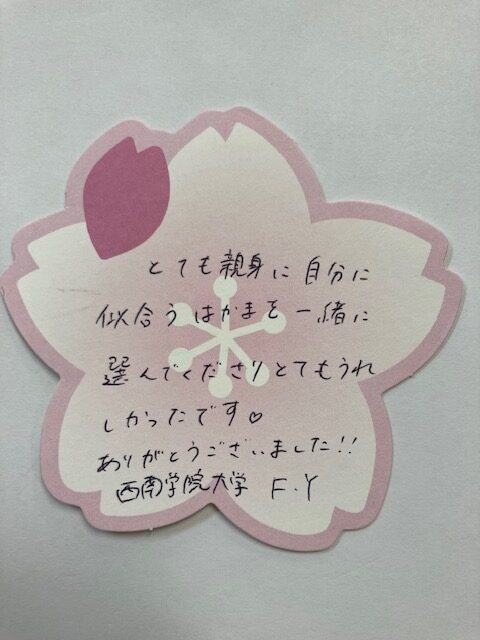 とても親身に自分に
似合うはかまを一緒に
選んでくださりとてもうれ
しかったです♡
ありがとうございました!!
西南学院大学 F.Y